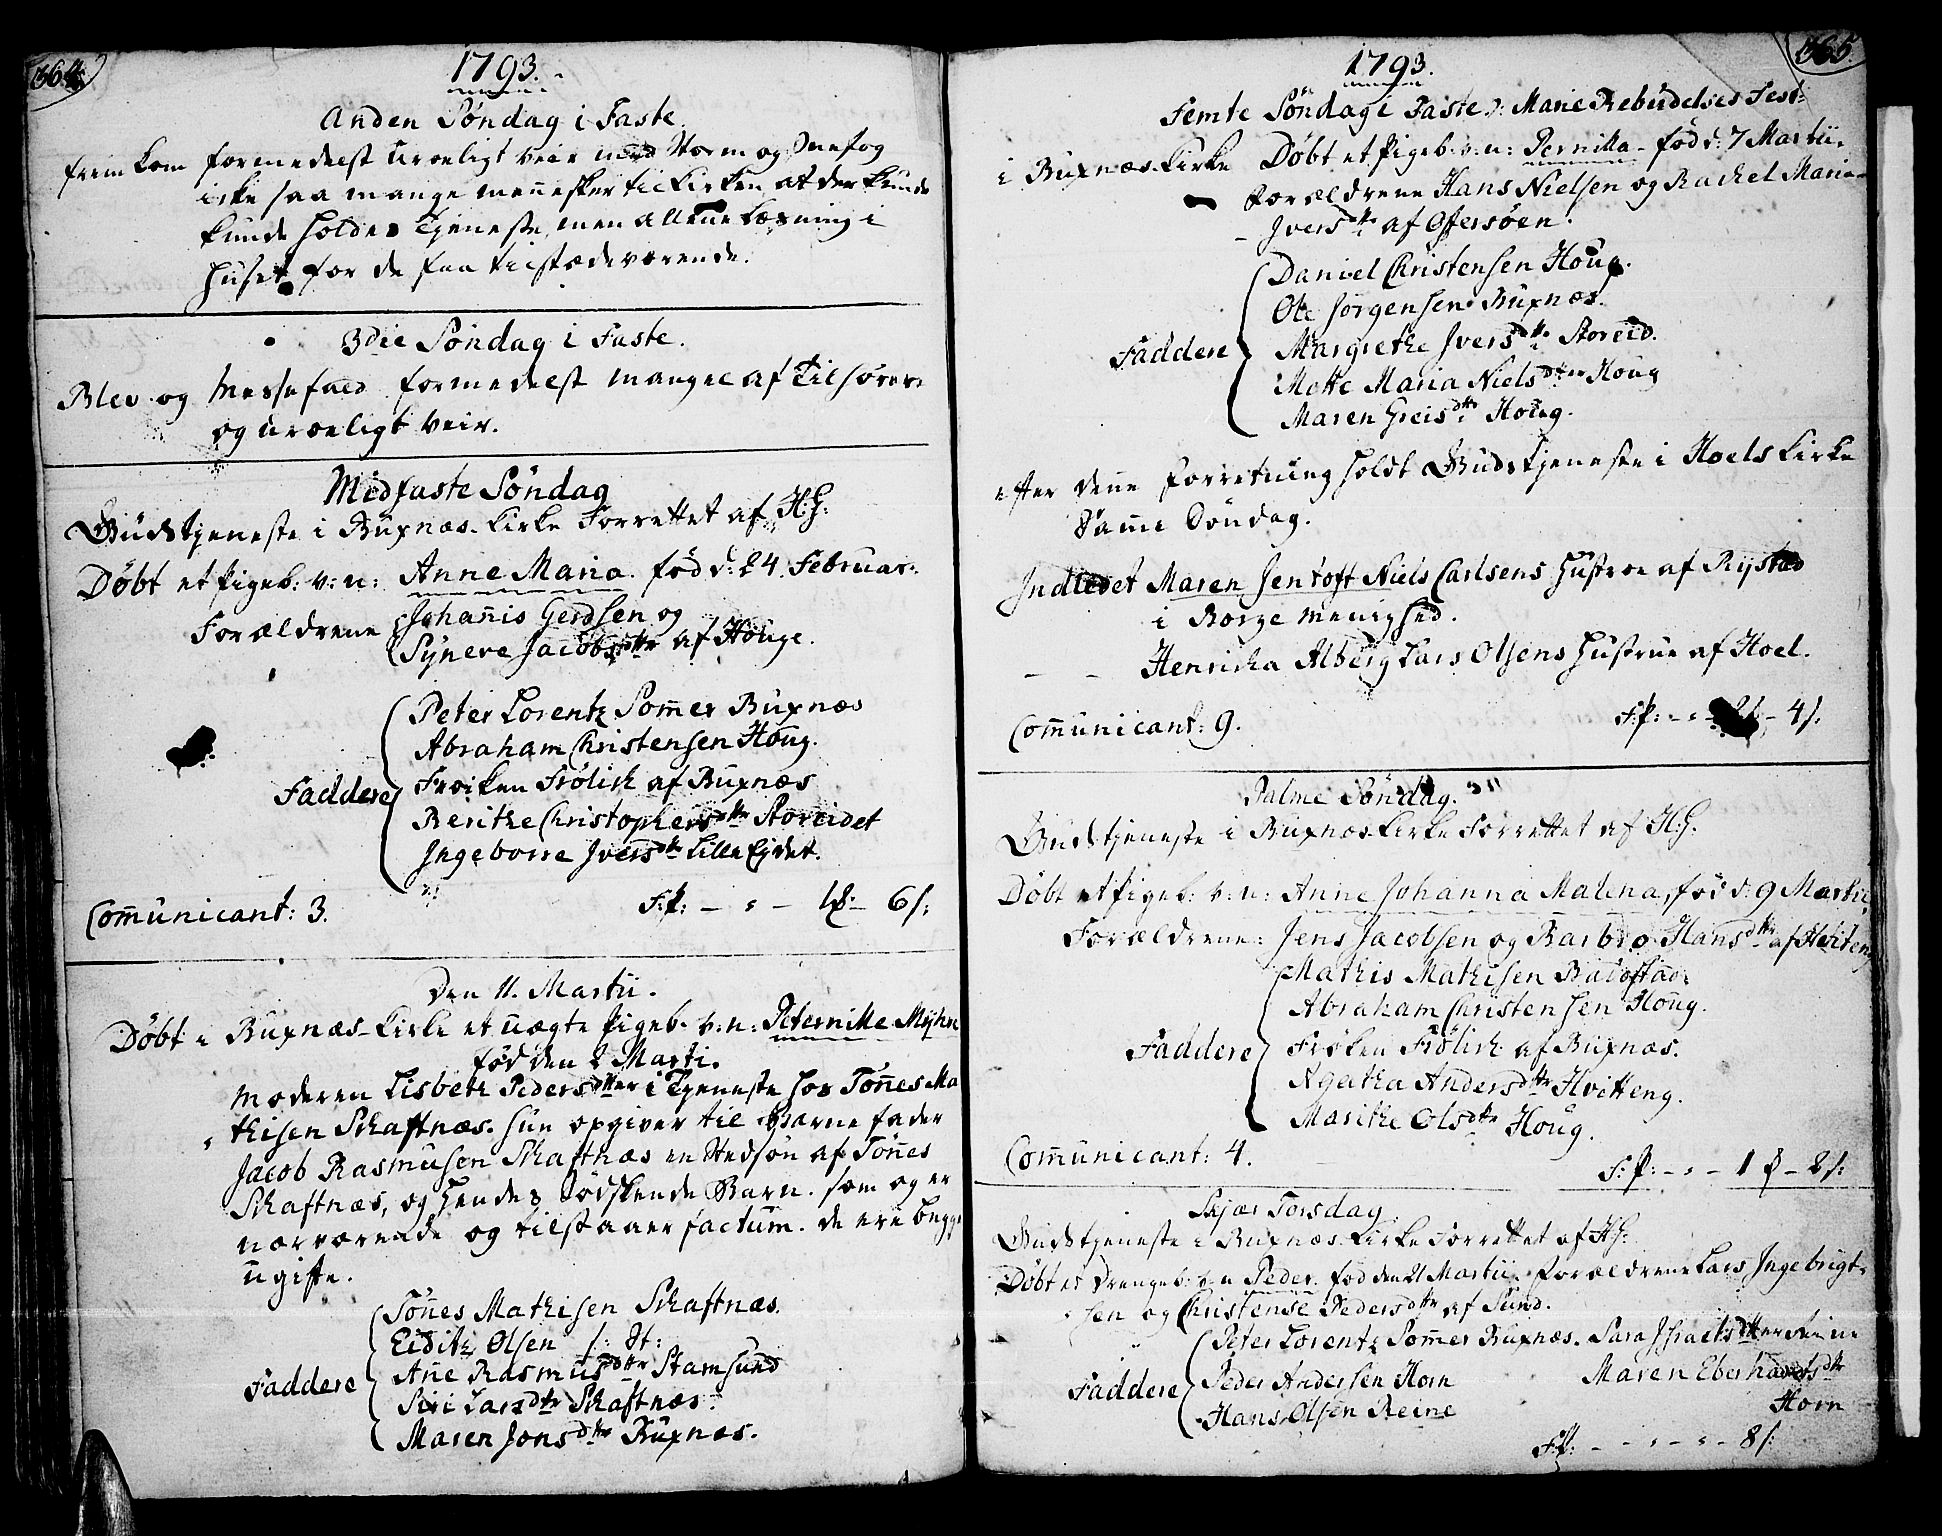 364.
1793.
Anden Söndag i Faste.
fremkom formedelst uroeligt veir med Storm og Snefog
icke saa mange mennesker til Kirken at der kunde
kunde holdes Tjeneste, men allene Læsning i
huset for de faa tilstædeværende.
3die Söndag i Faste.
Blev og Messefald formedelst mangel af Tilhörere
og uroeligt veir.
Midfaste Söndag
Gudstjeneste i Buxnæs Kirke Forrettet af H:G:
Döbt et Pigeb: v: n: Anne Maria. föd d: 24 Februar:
Forældrene Johannis Gerdsen og
Synere Jacobsdttr af Houge.
Peter Lorentz Som̅er Buxnæs
Abraham Christensen Houg.
Fröiken Frölich af Buxnæs
Faddere
Berithe Christophersdttr Storeidet
Ingeborre Iversdttr Lille Eydet.
Com̅unicant: 3. F:p: - : - 1 - 6 s:
Den 11. Martii.
Döbt i Buxnæs Kirke et uægte Pigeb. v: n: Peternille Myhre
föd den 2 Marti.
Moderen Lisbeth Pedersdtter i Tjeneste hos Tön̅es Ma
thisen Skaftnæs. hun opgiver til Barnefader
Jacob Rasmusen Skaftnæs en Stedsön af Tön̅es
Skaftnæs, og hendes Södskende Barn. som og er
nærværende og tilstaaer factum. de ere begge
ugifte.
Tön̅es Mathisen Skaftnæs.
Eidith Olsen s: St:
Faddere An̅e Rasmusdttr Stamsund
Siri Larsdttr Skaftnæs.
Maren Jonsdttr Buxnæs.
365.
1793.
Femte Söndag i Faste ɔ: Mariæ Bebudelses Fest:
i Buxnæs Kirke Döbt et Pigeb: v: n: Pernilla - föd d: 7 Martii.
Forældrene Hans Nielsen og Rachel Maria
Iversdttr af Offersöen.
Daniel Christensen Houg.
Ole Jörgensen Buxnæs.
Faddere Margrethe Iversdttr Storeid.
Mette Maria Nielsdtter Houg
Maren Greisdttr Houg.
efter den̅e Forretning holdt Gudstjeneste i Hoels Kirke
Sam̅e Söndag.
Indledet Maren Jentoft Niels Carlsens Hustroe af Rystad
i Borge Menighed.
- - Henricha Alberg Lars Olsens Hustrue af Hoel.
Com̅unicant: 9. F:p: - : - - 4 s:
Palme Söndag.
Gudstjeneste i Buxnæs Kirke Forrettet af H:G.
Döbt et Pigeb: v: n: Anne Johanna Malena, föd d: 9 Martii,
Forældrene: Jens Jacobsen og Barbro Hansdttr af Hviteng
Mathis Mathisen Balestad
Abraham Christensen Houg.
Faddere Fröken Frölich af Buxnæs.
Agatha Andersdttr Hvitteng.
Marithe Olsdttr Houg.
Com̅unicant: 4. F:p: - : - 1 - 2 s:
Skjær Torsdag
Gudstjeneste i Buxnæs Kirke Forrettet af HG:
Döbt et Drengeb: v: n Peder. föd den 21 Martii. Forældrene Lars Ingebrigt-
sen og Christense Pedersdttr af Sund.
Peter Lorentz Som̅er Buxnæs. Sara Israelsdtter Reine
Faddere Peder Andersen Horn Maren Eberhardsdttr
Hans Olsen Reine Horn
F:p: - - : - : - 8 s: